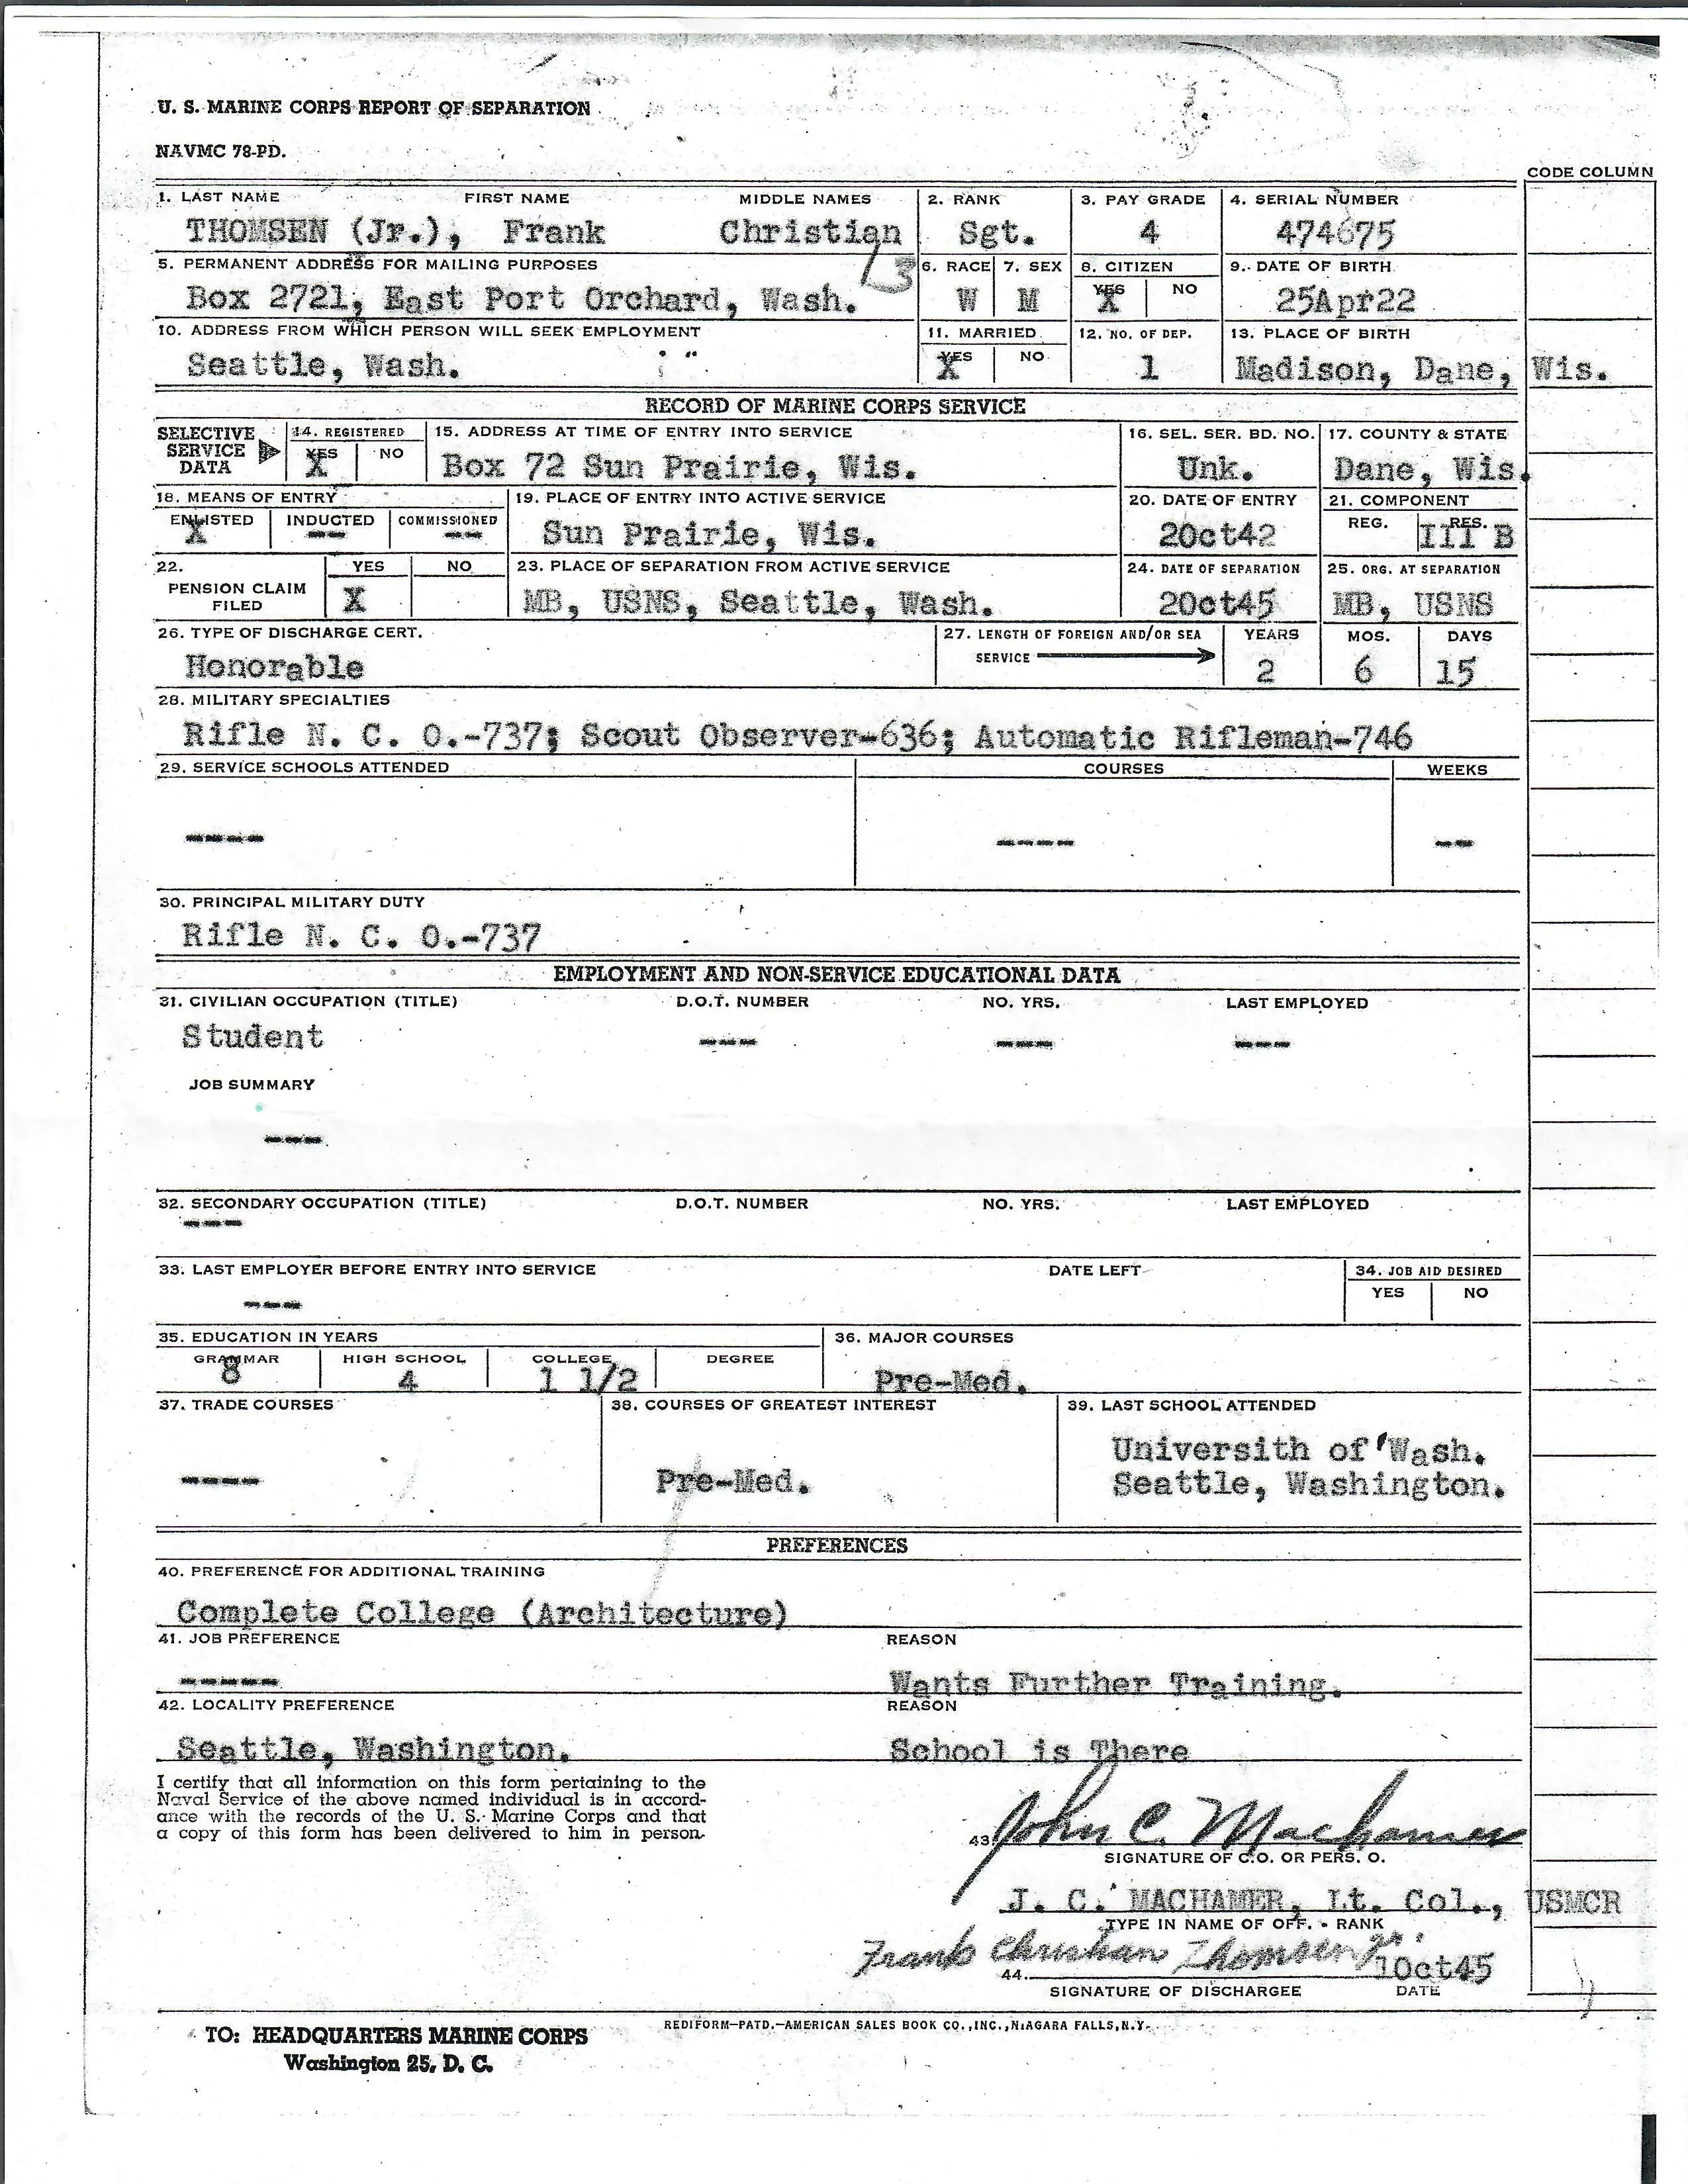 U. S. MARINE CORPS REPORT OF SEPARATION
NAVMC 78-PD.
CODE COLUMN
1. LAST NAME FIRST NAME MIDDLE NAMES 2. RANK 3. PAY GRADE 4. SERIAL NUMBER
THOMSEN (Jr.), Frank Christian Sgt. 4 474675
5. PERMANENT ADDRESS FOR MAILING PURPOSES 6. RACE 7. SEX 8. CITIZEN 9. DATE OF BIRTH
YES NO
Box 2721, East Port Orchard, Wash. W M X 25Apr22
10. ADDRESS FROM WHICH PERSON WILL SEEK EMPLOYMENT 11. MARRIED 12. NO. OF DEP. 13. PLACE OF BIRTH
YES NO
Seattle, Wash. X 1 Madison, Dane, Wis.
RECORD OF MARINE CORPS SERVICE
SELECTIVE SERVICE DATA 14. REGISTERED 15. ADDRESS AT TIME OF ENTRY INTO SERVICE 16. SEL. SER. BD. NO. 17. COUNTY & STATE
YES NO
X Box 72 Sun Prairie, Wis. Unk. Dane, Wis.
18. MEANS OF ENTRY 19. PLACE OF ENTRY INTO ACTIVE SERVICE 20. DATE OF ENTRY 21. COMPONENT
ENLISTED INDUCTED COMMISSIONED REG. RES.
X -- -- Sun Prairie, Wis. 2Oct42 III B
22. YES NO 23. PLACE OF SEPARATION FROM ACTIVE SERVICE 24. DATE OF SEPARATION 25. ORG. AT SEPARATION
PENSION CLAIM FILED X MB, USNS, Seattle, Wash. 2Oct45 MB, USNS
26. TYPE OF DISCHARGE CERT. 27. LENGTH OF FOREIGN AND/OR SEA SERVICE YEARS MOS. DAYS
Honorable 2 6 15
28. MILITARY SPECIALTIES
Rifle N. C. O.-737; Scout Observer-636; Automatic Rifleman-746
29. SERVICE SCHOOLS ATTENDED COURSES WEEKS
---- ---- --
30. PRINCIPAL MILITARY DUTY
Rifle N. C. O.-737
EMPLOYMENT AND NON-SERVICE EDUCATIONAL DATA
31. CIVILIAN OCCUPATION (TITLE) D.O.T. NUMBER NO. YRS. LAST EMPLOYED
Student --- --- ---
JOB SUMMARY
---
32. SECONDARY OCCUPATION (TITLE) D.O.T. NUMBER NO. YRS. LAST EMPLOYED
---
33. LAST EMPLOYER BEFORE ENTRY INTO SERVICE DATE LEFT 34. JOB AID DESIRED
YES NO
---
35. EDUCATION IN YEARS 36. MAJOR COURSES
GRAMMAR HIGH SCHOOL COLLEGE DEGREE
8 4 1 1/2 Pre-Med.
37. TRADE COURSES 38. COURSES OF GREATEST INTEREST 39. LAST SCHOOL ATTENDED
Universith of Wash.
---- Pre-Med. Seattle, Washington.
PREFERENCES
40. PREFERENCE FOR ADDITIONAL TRAINING
Complete College (Architecture)
41. JOB PREFERENCE REASON
----- Wants Further Training.
42. LOCALITY PREFERENCE REASON
Seattle, Washington. School is There
I certify that all information on this form pertaining to the
Naval Service of the above named individual is in accord-
ance with the records of the U. S. Marine Corps and that
a copy of this form has been delivered to him in person.
43. John C. Machamer
SIGNATURE OF C.O. OR PERS. O.
J. C. MACHAMER, Lt. Col., USMCR
TYPE IN NAME OF OFF. - RANK
44. Frank Christian Thomsen Jr. 1Oct45
SIGNATURE OF DISCHARGEE DATE
REDIFORM—PATD.—AMERICAN SALES BOOK CO.,INC.,NIAGARA FALLS,N.Y.
TO: HEADQUARTERS MARINE CORPS
Washington 25, D. C.